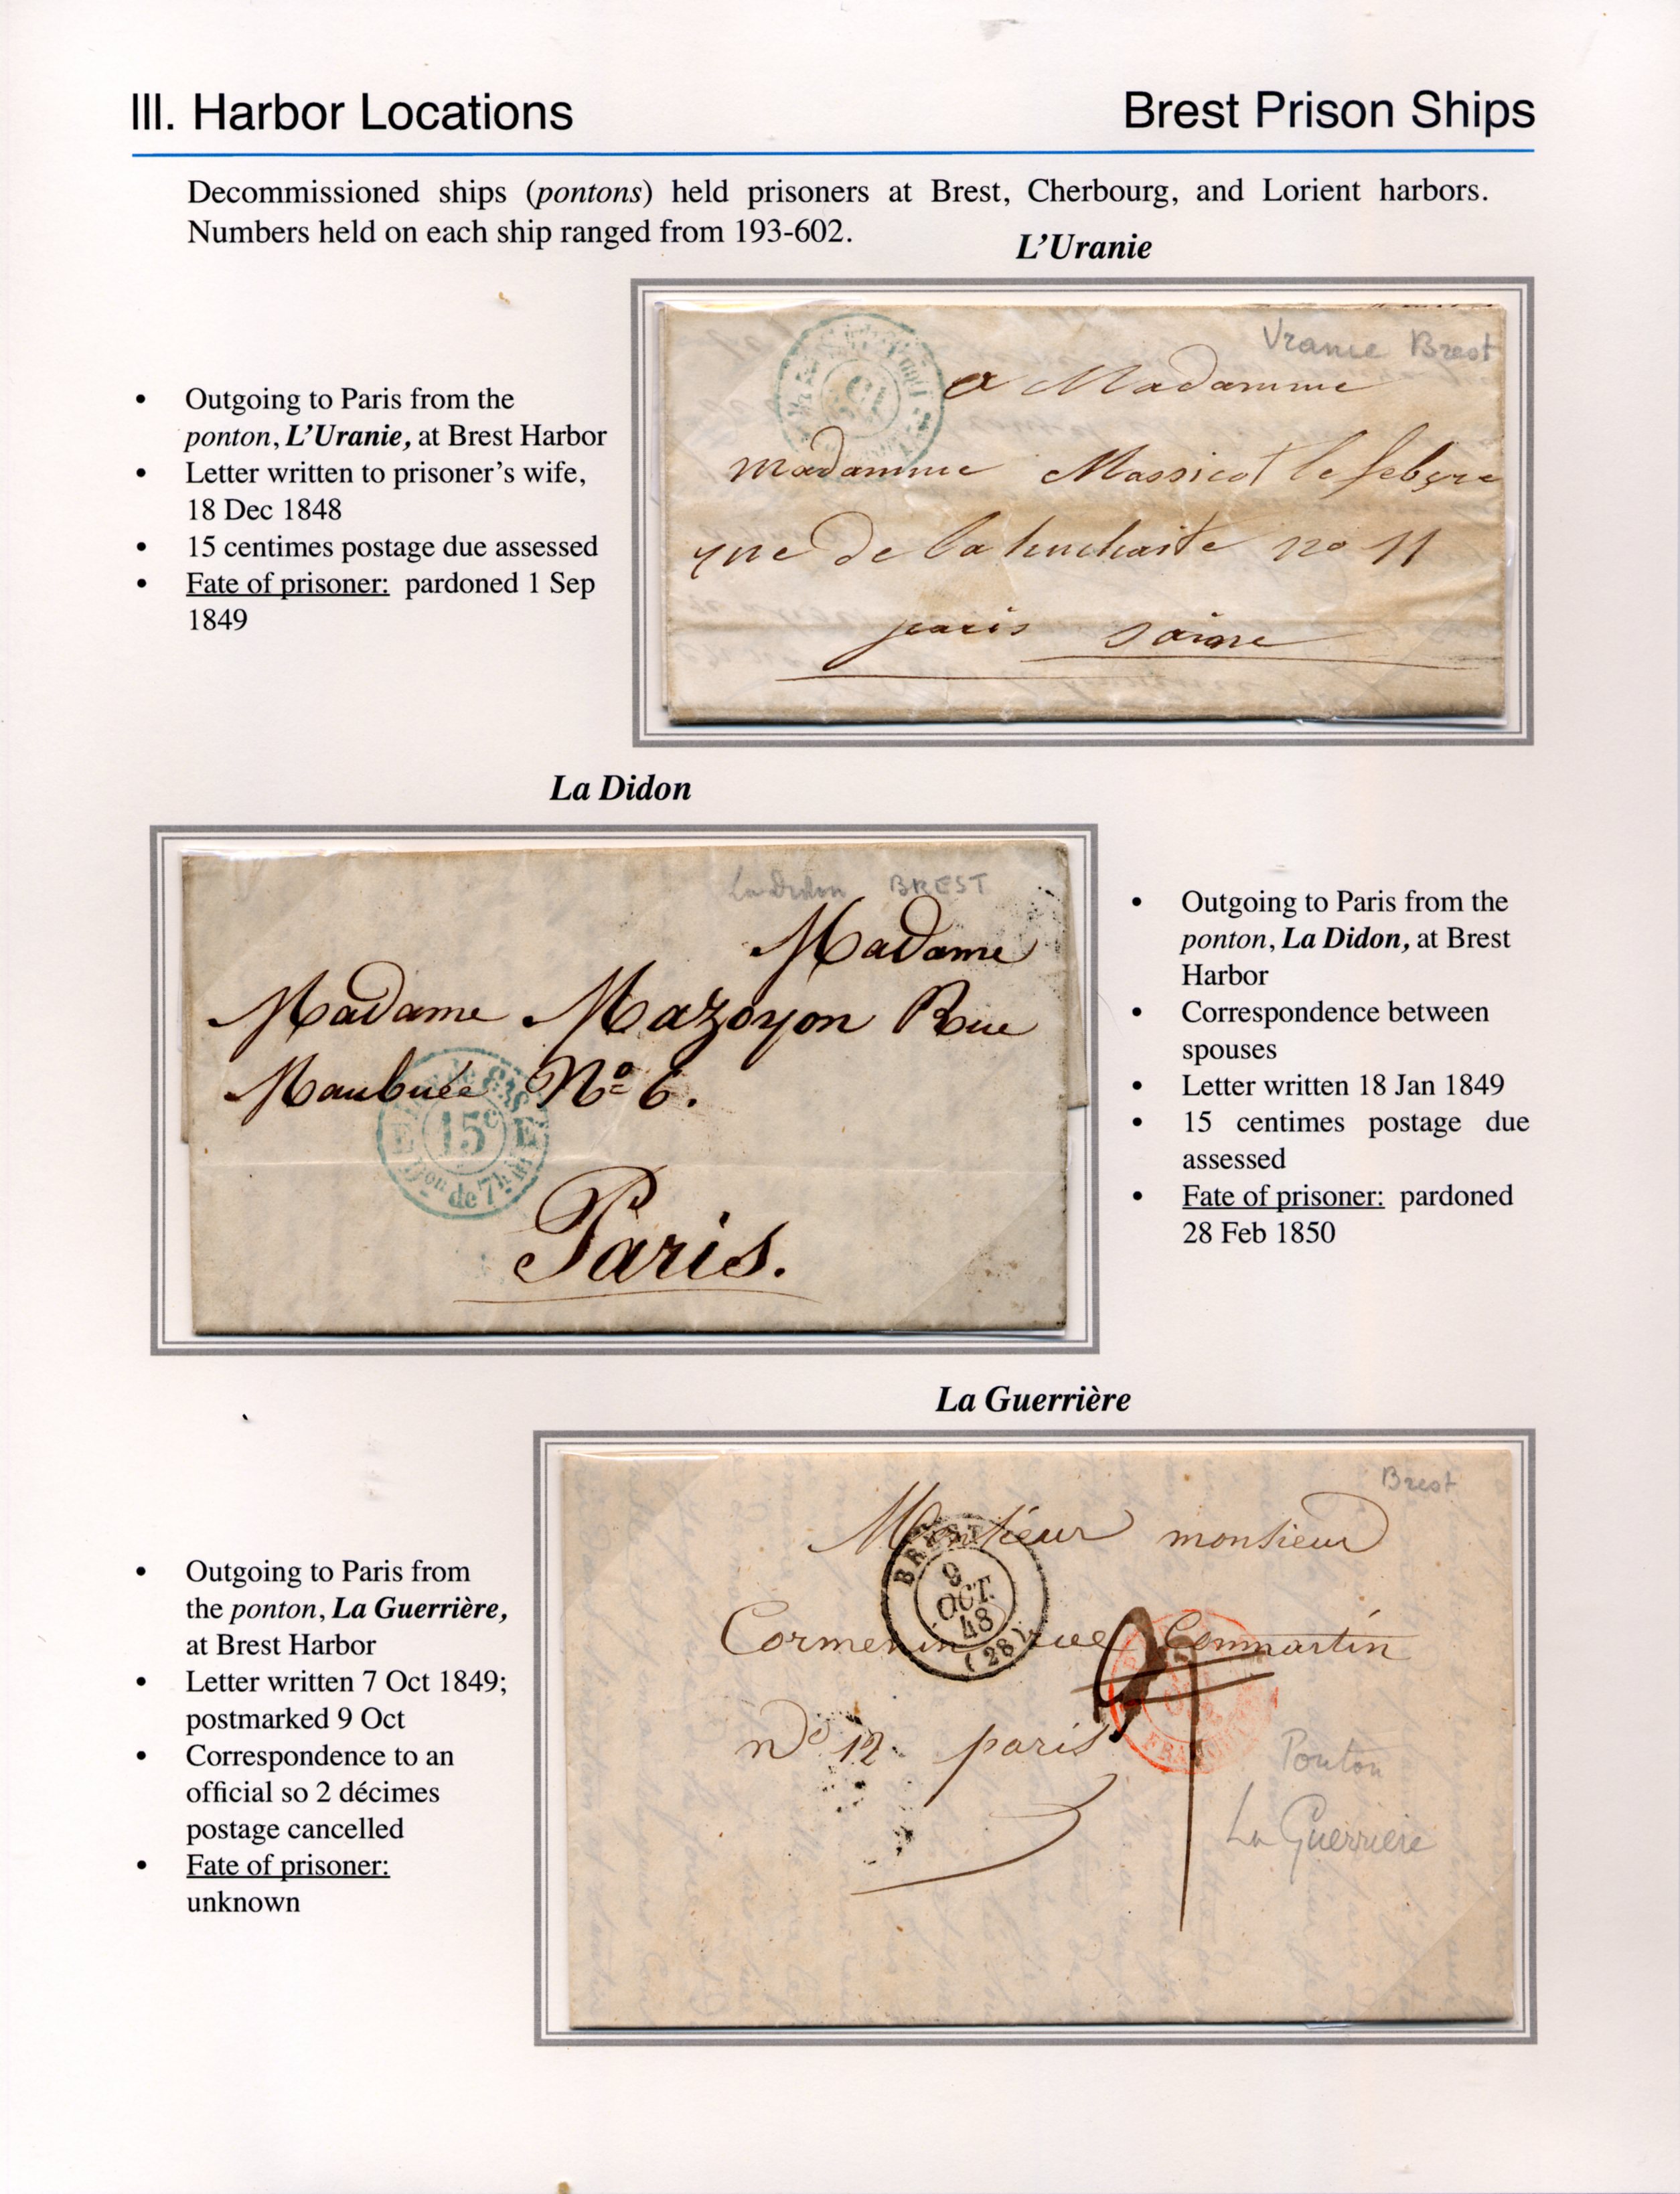 III. Harbor Locations
Brest Prison Ships
Decommissioned ships (pontons) held prisoners at Brest, Cherbourg, and Lorient harbors.
Numbers held on each ship ranged from 193-602.
L'Uranie
• Outgoing to Paris from the
ponton, L'Uranie, at Brest Harbor
• Letter written to prisoner's wife,
18 Dec 1848
• 15 centimes postage due assessed
• Fate of prisoner: pardoned 1 Sep
1849
Brest
a Madamme
madamme Massicot
de la no 11
paris
La Didon
La Didon BREST
Madame
Madame Mazoyon Rue
Maubuée No 6.
E 15c E
de 7h
Paris.
• Outgoing to Paris from the
ponton, La Didon, at Brest
Harbor
• Correspondence between
spouses
• Letter written 18 Jan 1849
• 15 centimes postage due
assessed
• Fate of prisoner: pardoned
28 Feb 1850
La Guerrière
• Outgoing to Paris from
the ponton, La Guerrière,
at Brest Harbor
• Letter written 7 Oct 1849;
postmarked 9 Oct
• Correspondence to an
official so 2 décimes
postage cancelled
• Fate of prisoner:
unknown
Brest
Monsieur monsieur
BREST
9
OCT.
48
(28)
Cormenin rue
no 12 paris
Ponton
La Guerriere